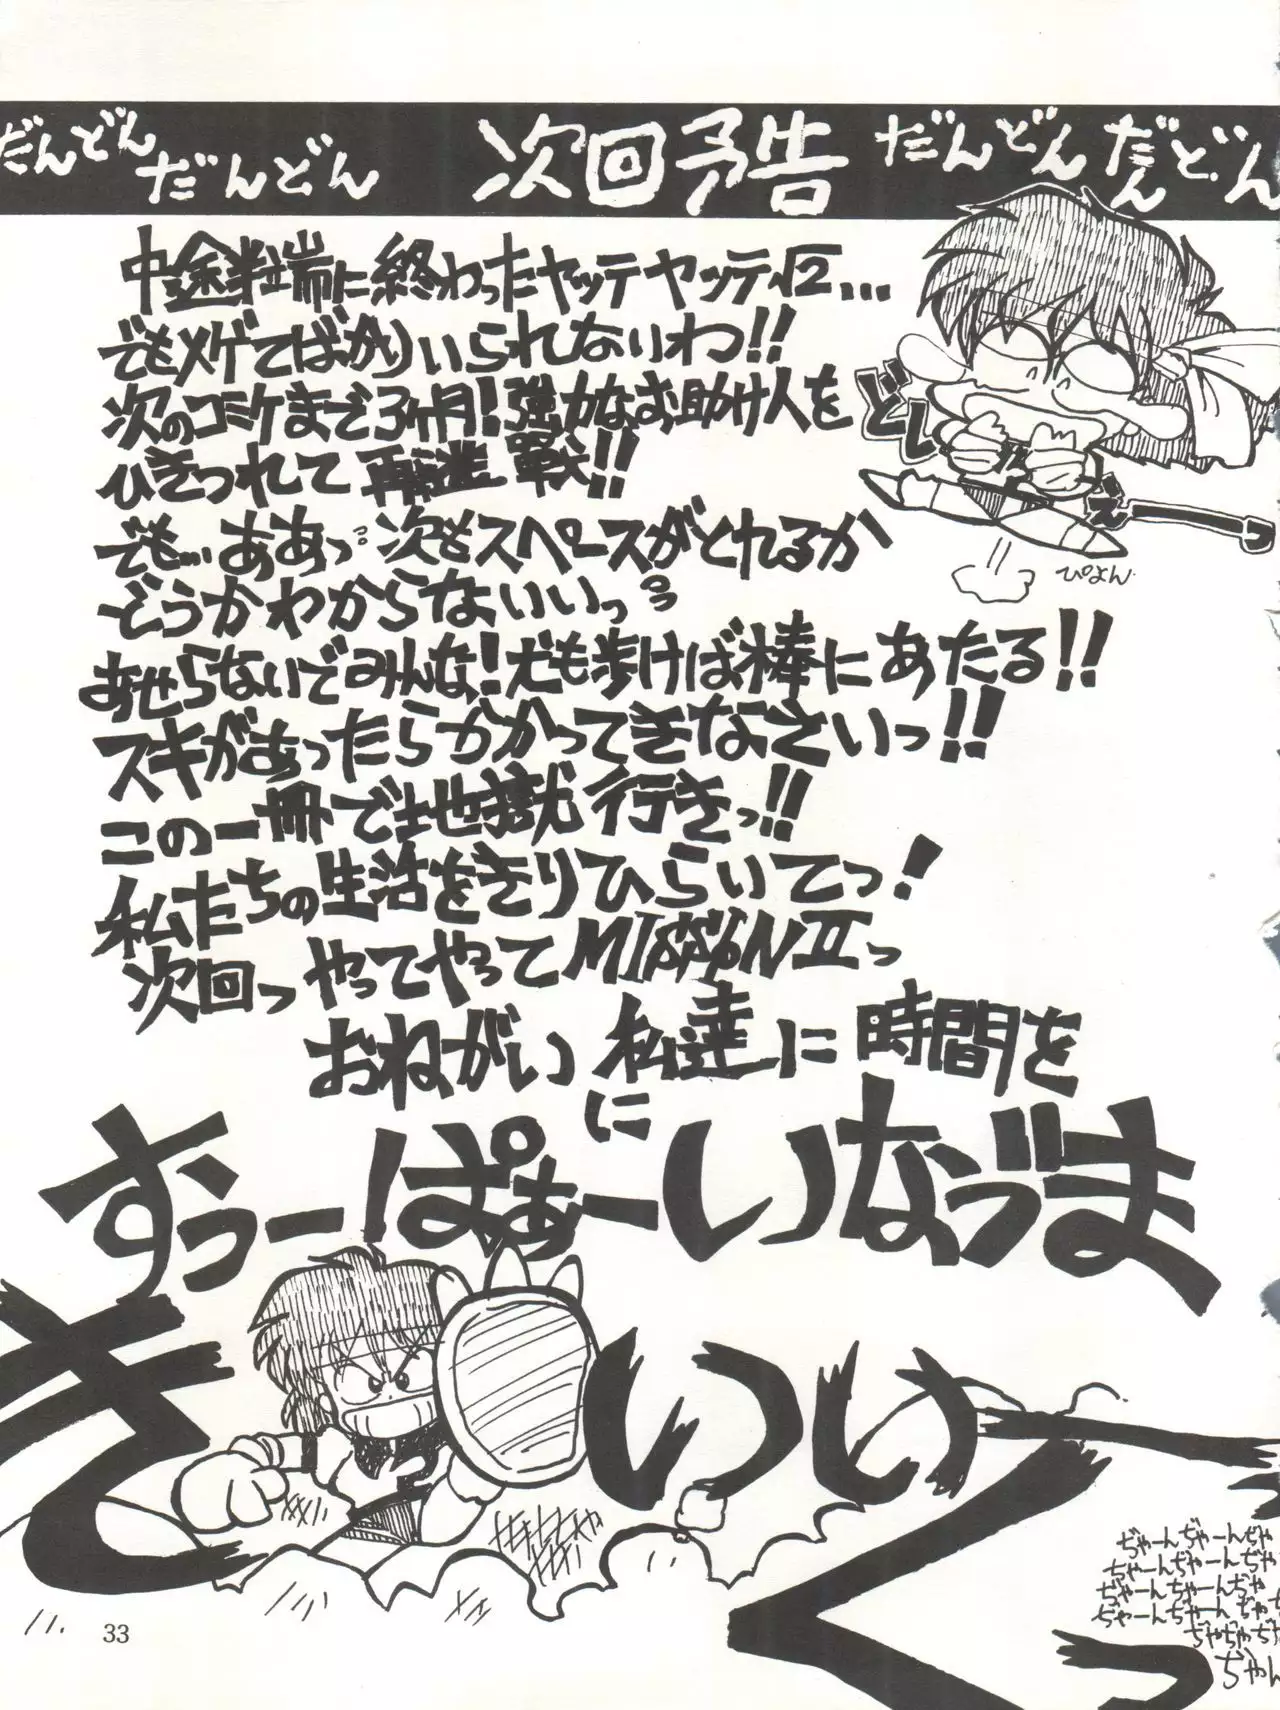 だんどん だんどん 次回予告 だんどん だんど.ん
中途半端に終わったヤッテヤッテ√2...
でもメゲてばかりいられないわ!!
次のコミケまで3ヶ月!強力なお助け人を
ひきつれて再進撃!!
でも...ああっ 次もスペースがとれるか
どうかわからないいっ
あせらないでみんな!犬も歩けば棒にあたる!!
スキがあったらかかってきなさいっ!!
この一冊で地獄行きっ!!
私たちの生活をきりひらいてっ!
次回っ やってやって MISSION IIっ
おねがい 私達に 時間を
に
すっー!ぱぁーいなづま
きいいいーくっ
どしぇえー
ぴょん.
ぢゃーんぢゃーんぢゃ
ぢゃーんちゃーんぢゃ
ぢゃーんちゃーんぢゃ
ぢゃーんちゃーん ぢゃぢ
ぢゃぢゃぢ
ぢゃん
33